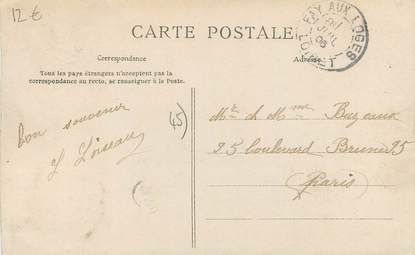 12€
CARTE POSTALE
FAY AUX LOGES
LOIRET
Correspondance
Tous les pays étrangers n'acceptent pas la
correspondance au recto, se renseigner à la Poste.
Adresse
bon souvenir
L Loiseau
45
Mr & Mme Buzeaux
25 boulevard Brune 25
(Paris)